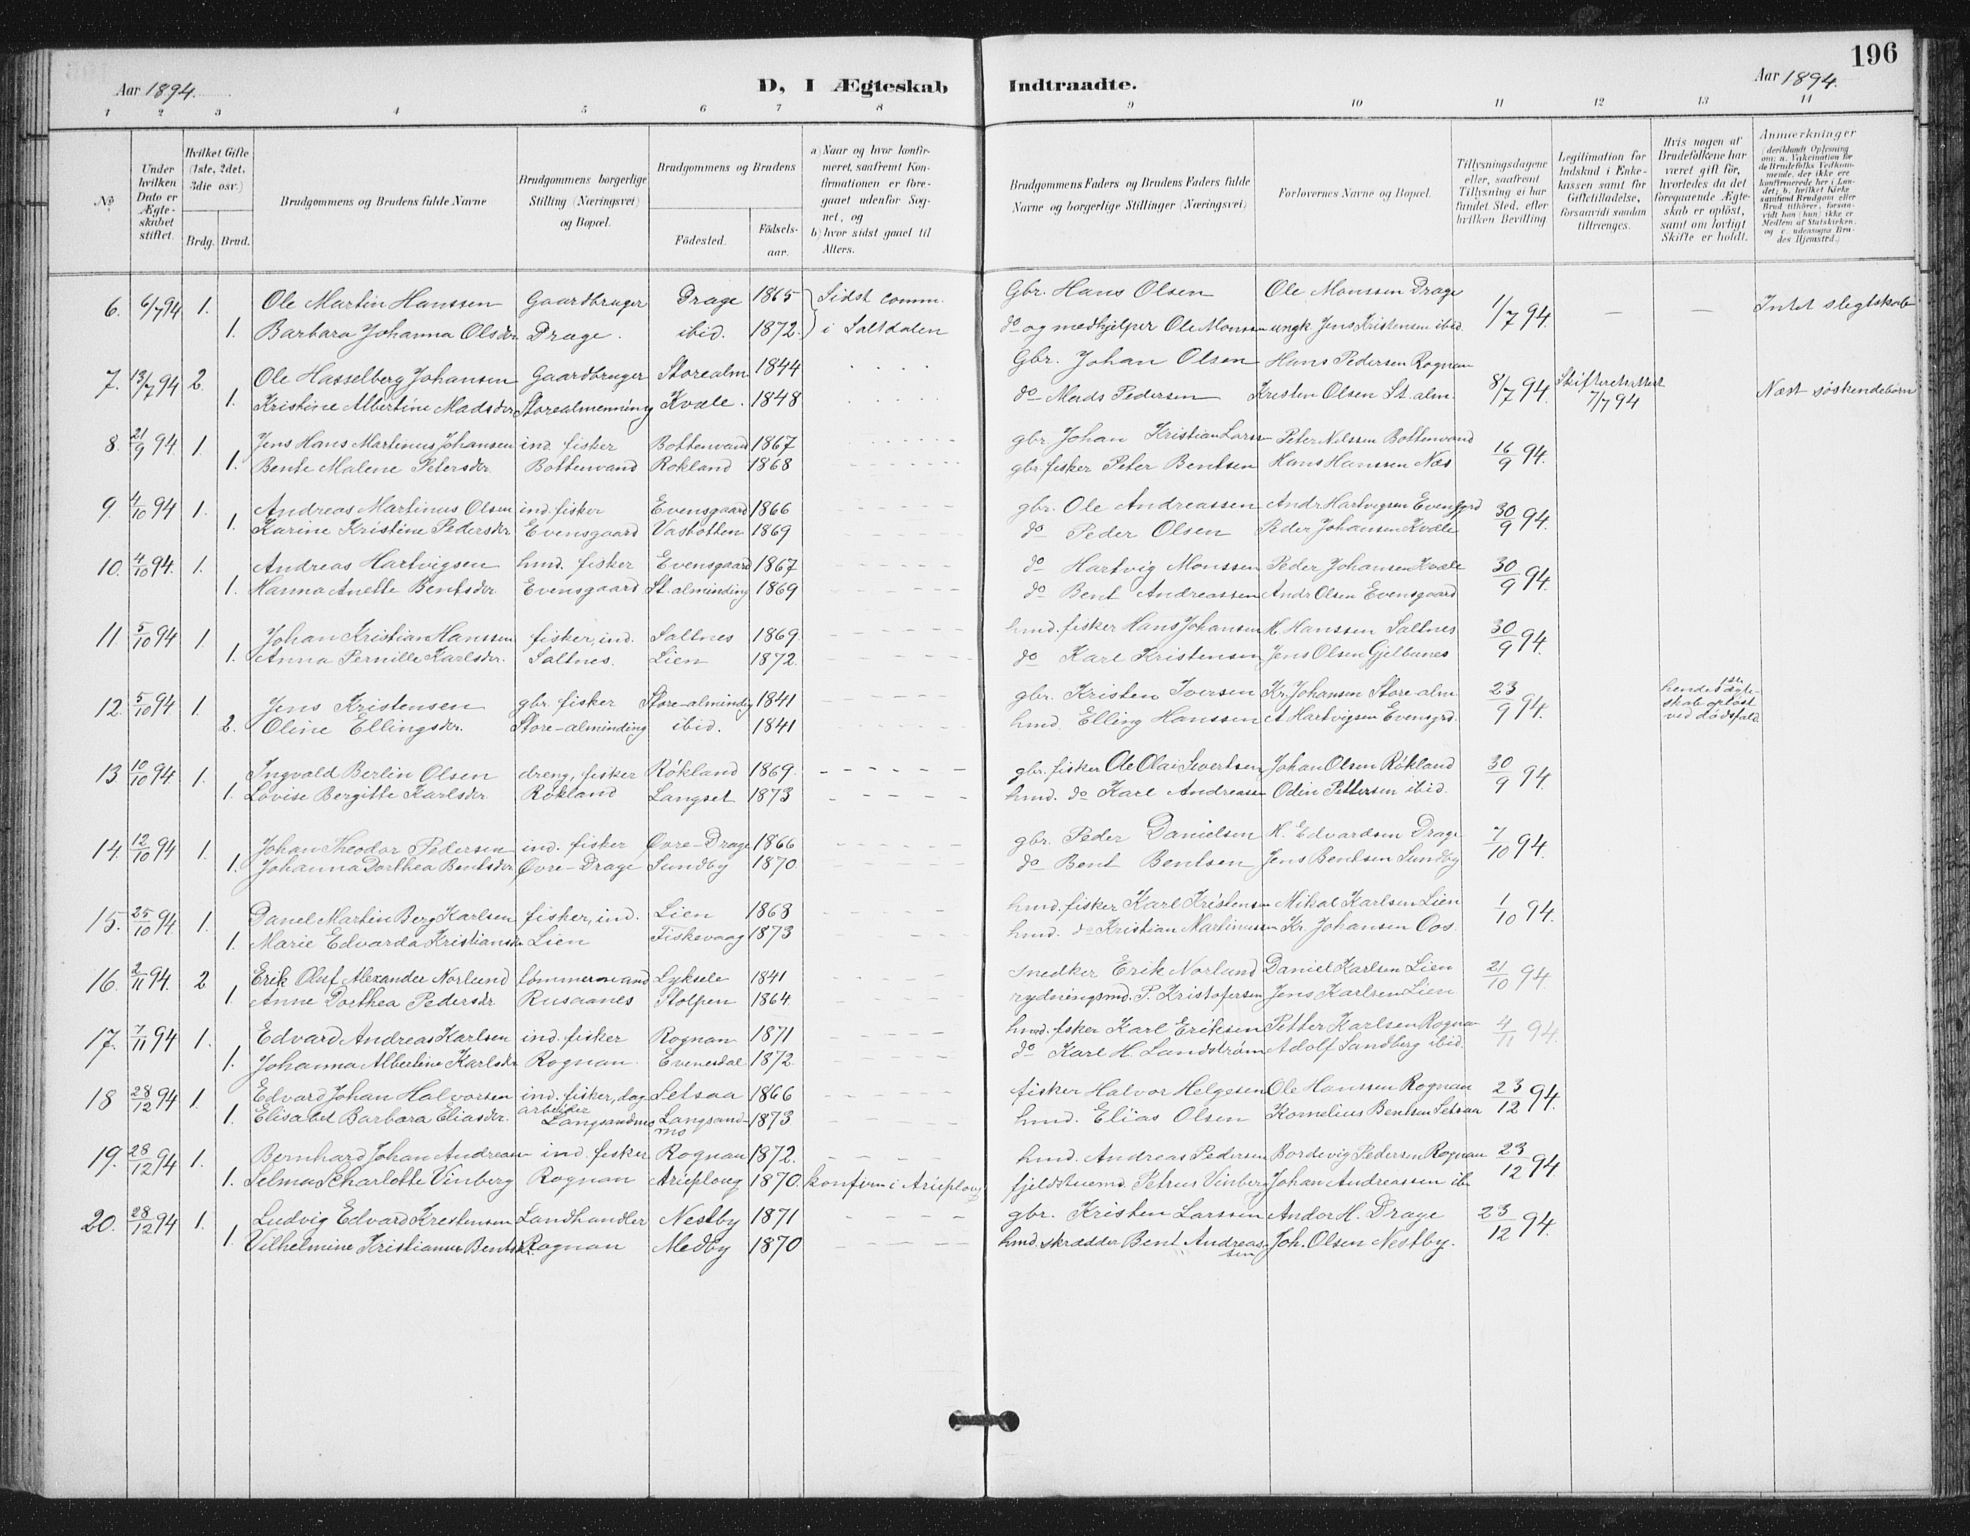 196
Aar 1894.
D, I Ægteskab Indtraadte.
Aar 1894.
1 2 3 4 5 6 7 8 9 10 11 12 13 14
No.
Under hvilken Dato er Ægteskabet stiftet.
Hvilket Gifte (1ste, 2det, 3die osv.)
Brdg. Brud.
Brudgommens og Brudens fulde Navne
Brudgommens borgerlige Stilling (Næringsvei) og Bopæl.
Brudgommens og Brudens
Fødested. Fødselsaar.
a) Naar og hvor konfirmeret, saafremt Konfirmationen er foregaaet udenfor Sognet, og
b) hvor sidst gaaet til Alters.
Brudgommens Faders og Brudens Faders fulde Navne og borgerlige Stillinger (Næringsvei)
Forlovernes Navne og Bopæl.
Tillysningsdagene eller, saafremt Tillysning ei har fundet Sted, efter hvilken Bevilling.
Legitimation for Indskud i Enkekassen samt for Giftetilladelse, forsaavidt saadan tiltrænges.
Hvis nogen af Brudefolkene har været gift før, hvorledes da det foregaaende Ægteskab er opløst, samt om lovligt Skifte er holdt.
Anmærkninger
6. 6/7 94 1. Ole Martin Hanssen Gaardbruger Drage 1865 Sidst comm. Gbr. Hans Olsen Ole Monssen Drage 1/7 94. — — Intet slegtskab
1. Barbara Johanna Olsdr Drage. ibid. 1872. i Saltdalen do og medhjelper Ole Monssen ungk Jens Kristensen ibid.
7. 13/7 94 2. Ole Hasselberg Johansen Gaardbruger Storealm 1844 Gbr. Johan Olsen Hans Pedersen Rognan 8/7 94. Skifteattest 7/7 94 Næst søskendebörn
1. Kristine Albertine Madsdr Storealmenning Kvæle. 1848 do Mads Pedersen Kresten Olsen St. alm.
8. 21/9 94 1. Jens Hans Martinus Johansen ind. fisker Bottenvand 1867 gbr. Johan Kristian Larssen Peter Nilssen Bottenvand 16/9 94.
1. Bente Malene Petersdr Bottenvand Rokland 1868 gbr fisker Peter Bentsen Hans Hanssen Næs
9. 4/10 94 1. Andreas Martinus Olsen ind. fisker Evensgaard 1866 gbr. Ole Andreassen Andr Hartvigsen Evensgrd 30/9 94.
1. Karine Kristine Pedersdr Evensgaard Vasbotten 1869 do Peder Olsen Peder Johansen Kvæle
10. 4/10 94. 1. Andreas Hartvigsen hmd. fisker Evensgaard 1867 do Hartvig Monssen Peder Johansen Kvæle 30/9 94.
1. Hanna Anette Bentsdr Evensgaard St. alminding 1869 do Bent Andreassen Andr Olsen Evensgaard
11. 5/10 94 1. Johan Kristian Hanssen fisker, ind. Saltnes 1869 hmd. fisker Hans Johansen H. Hanssen Saltnes 30/9 94.
1. Anna Pernille Karlsdr. Saltnes. Lien 1872. do Karl Kristensen Jens Olsen Gjelbunes
12. 5/10 94 1. Jens Kristensen gbr. fisker Store-alminding 1841 gbr. Kristen Iversen Kr. Johansen Store-alm. 23/9 94. hendes 1ste ægteskab opløst ved dødsfald
2. Oline Ellingsdr. Store-alminding ibid. 1841 hmd. Elling Hanssen A Hartvigsen Evensgrd.
13 10/10 94 1. Ingvald Berlin Olsen dreng, fisker Rökland 1869. gbr. fisker Ole Olai Sivertsen Johan Olsen Rökland 30/9 94.
1. Lovise Bergitte Karlsdr Rökland Langset 1873 hmd. do Karl Andreasen Odin Pettersen ibid.
14. 12/10 94 1. Johan Theodor Pedersen ind. fisker Øvre-Drage 1866 gbr. Peder Danielsen H. Edvardsen Drage 7/10 94.
1. Johanna Dorthea Bentsdr Øvre-Drage Sundby 1870 do Bent Bentsen Jens Bentsen Sundby
15. 25/10 94 1. Danel Martin Berg Karlsen fisker, ind. Lien 1868 hmd. fisker Karl Kristensen Mikal Karlsen Lien 1/10 94.
1. Marie Edvarda Kristiansdr Lien Fiskevaag 1873 hmd. do Kristian Martinussen Kr. Johansen Oos.
16. 2/11 94. 2 Erik Oluf Alexander Norlund tømmermand Lyksele 1841 snedker Erik Norland Daniel Karlsen Lien 21/10 94.
1 Anne Dorthea Pedersdr Rusaanes Stolpen 1864 rydningsmd. P. Kristofersen Jens Karlsen Lien
17. 7/11 94 1. Edvard Andreas Karlsen ind. fisker Rognan 1871 hmd. fsker Karl Eriksen Petter Karlsen Rognan 4/11 94.
1. Johanna Albertine Karlsdr Rognan. Evenesdal 1872. do Karl H. Landström Adolf Sandberg ibid.
18 28/12 94 1. Edvard Johan Halvorsen ind. fisker, dagarbeider Setsaa 1866 fisker Halvor Helgesen Ole Hanssen Rognan 23/12 94.
1. Elisabet Barbara Eliasdr. Langsandmo Langsandmo 1873 hmd. Elias Olsen Kornelius Bentsen Setsaa
19. 28/12 94 1. Bernhard Johan Andreasen ind. fisker Rognan 1872. hmd. Andreas Pedersen Bordevig Pedersen Rognan 23/12 94.
1. Selma Scharlotte Vinberg Rognan Arieploug 1870. konfirm i Arieploug fjeldstuemd. Petrus Vinberg Johan Andreassen ib
20. 28/12 94 1. Ludvig Edvard Krestensen Landhandler Nestby 1871 gbr. Kristen Larssen Andor H. Drage 23/12 94.
1. Vilhelmine Kristianna Bentsdr. Rognan Medby 1870 hmd. skrædder Bent Andreassen Joh. Olsen Nestby.